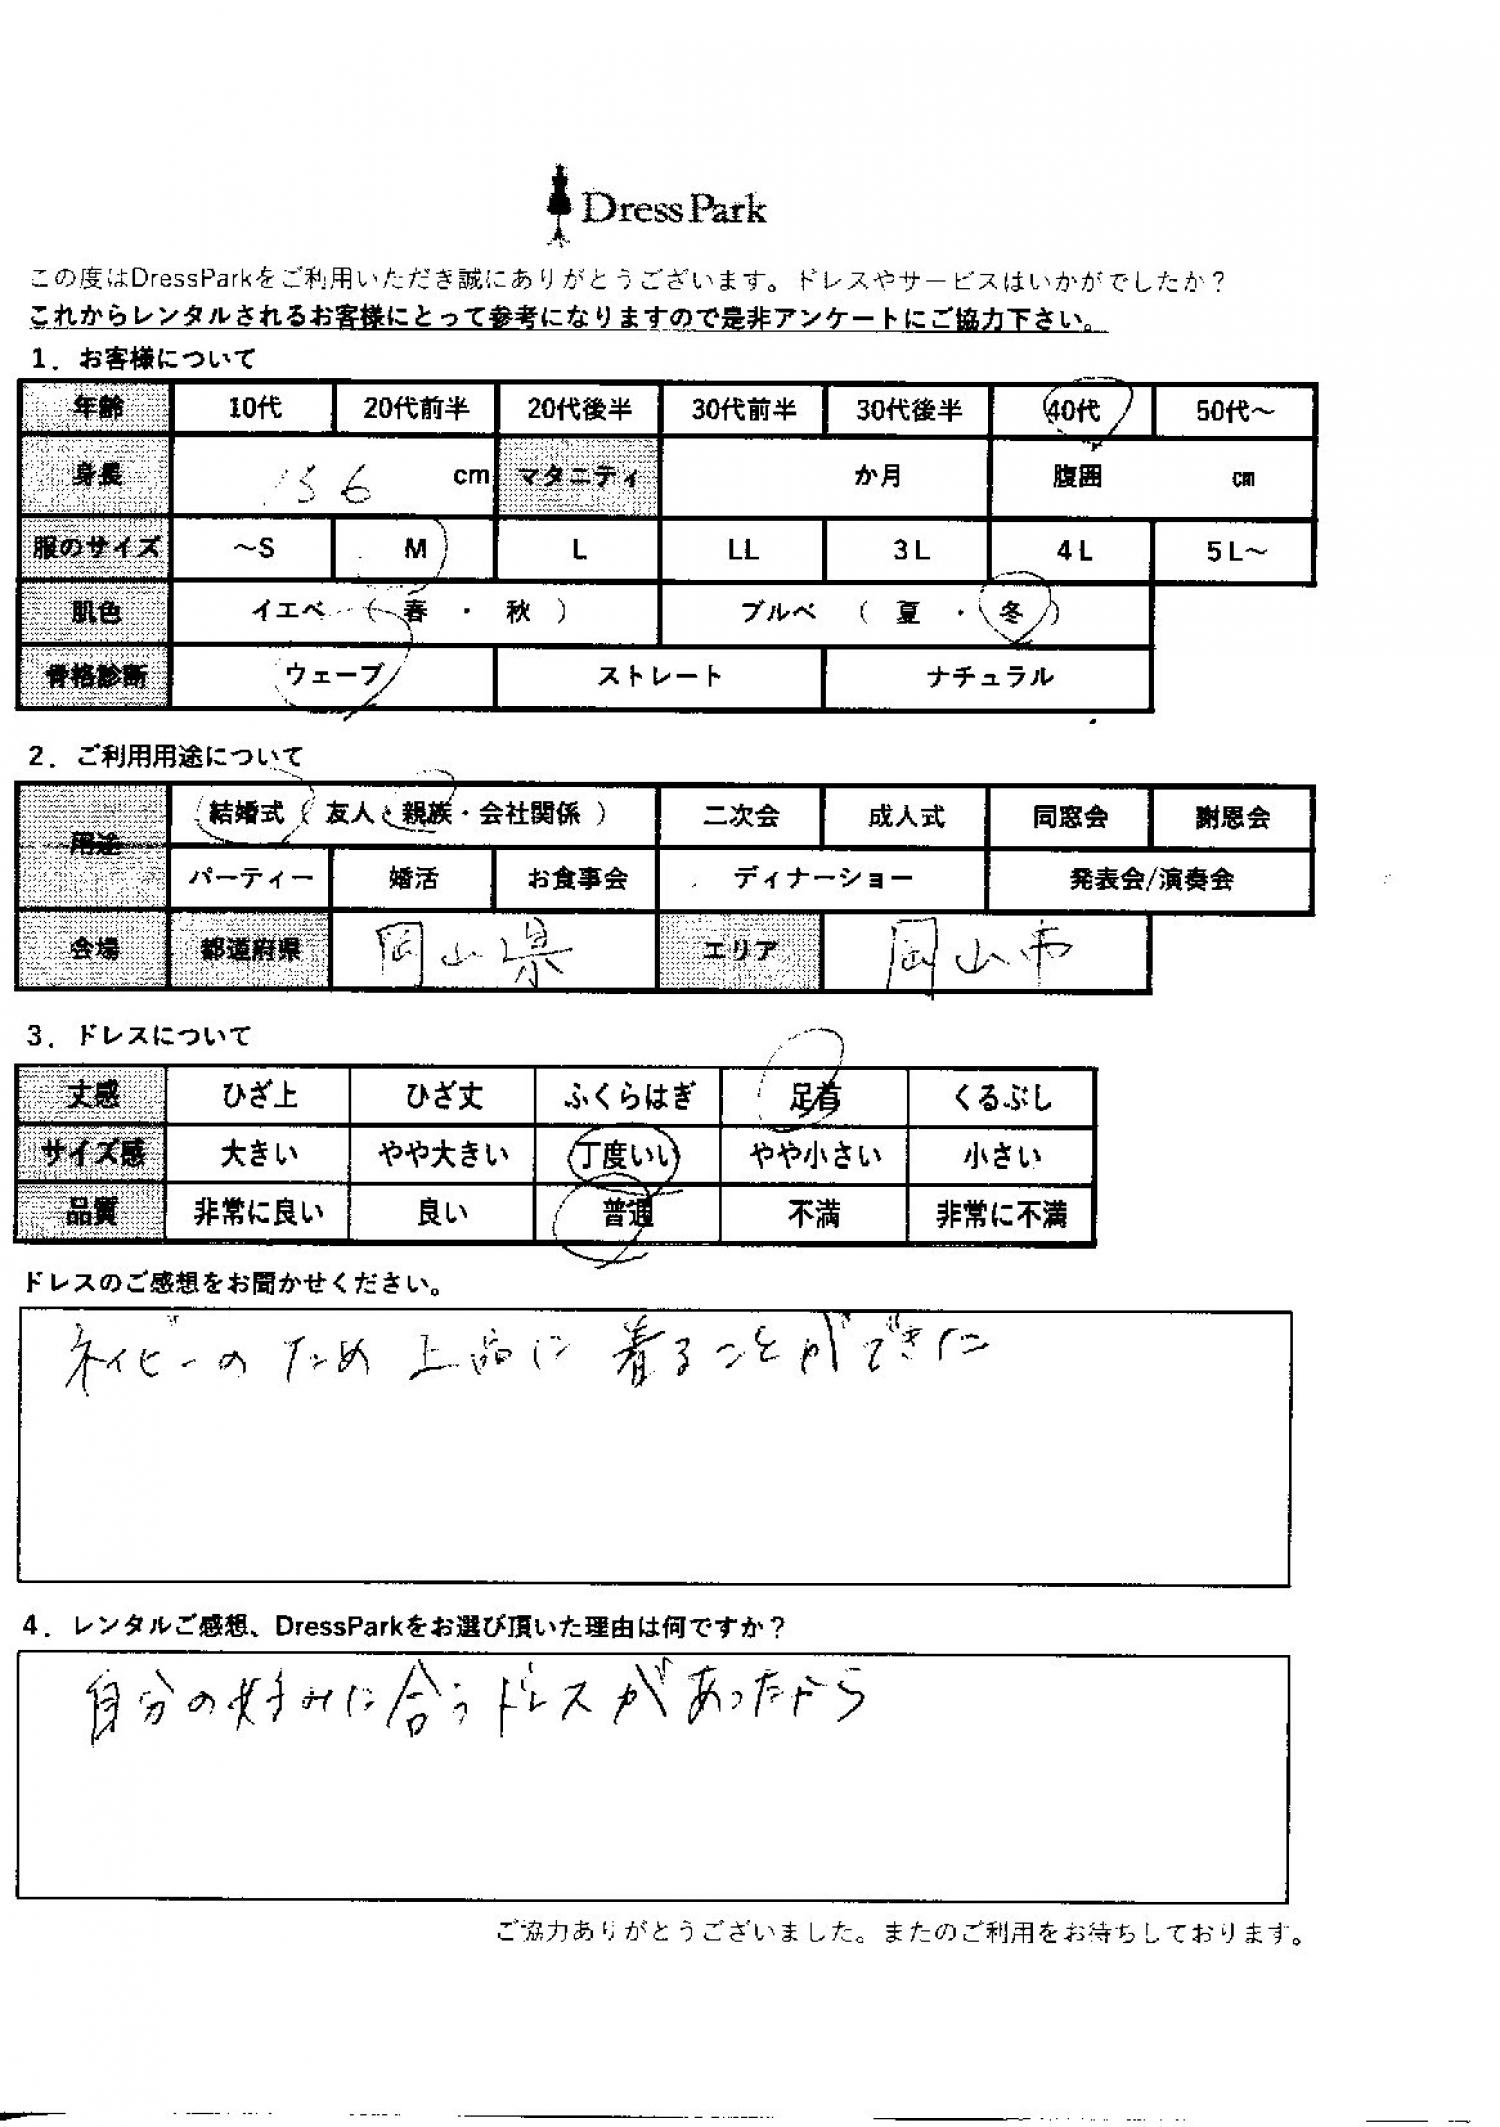 DressPark
この度はDressParkをご利用いただき誠にありがとうございます。ドレスやサービスはいかがでしたか？
これからレンタルされるお客様にとって参考になりますので是非アンケートにご協力下さい。
1．お客様について
年齢 10代 20代前半 20代後半 30代前半 30代後半 40代 50代～
身長 156 cm マタニティ か月 腹囲 cm
服のサイズ ～S M L LL 3L 4L 5L～
肌色 イエベ （ 春 ・ 秋 ） ブルベ （ 夏 ・ 冬 ）
骨格診断 ウェーブ ストレート ナチュラル
2．ご利用用途について
用途 結婚式（ 友人・親族・会社関係 ） 二次会 成人式 同窓会 謝恩会
パーティー 婚活 お食事会 ディナーショー 発表会/演奏会
会場 都道府県 岡山県 エリア 岡山市
3．ドレスについて
丈感 ひざ上 ひざ丈 ふくらはぎ 足首 くるぶし
サイズ感 大きい やや大きい 丁度いい やや小さい 小さい
品質 非常に良い 良い 普通 不満 非常に不満
ドレスのご感想をお聞かせください。
ネイビーのため上品に着ることができた
4．レンタルご感想、DressParkをお選び頂いた理由は何ですか？
自分の好みに合うドレスがあったから
ご協力ありがとうございました。またのご利用をお待ちしております。